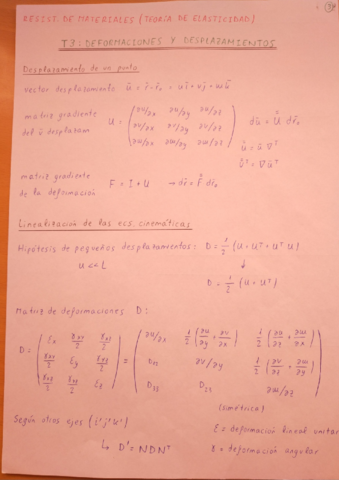 RESIST. DE MATERIALES (TEORÍA DE ELASTICIDAD)
T3: DEFORMACIONES Y DESPLAZAMIENTOS
Desplazamiento de un punto
vector desplazamiento ū = r̄ - r̄₀ = uī + vj̄ + wk̄
matriz gradiente del ū desplazam U = ( ∂u/∂x ∂u/∂y ∂u/∂z
∂v/∂x ∂v/∂y ∂v/∂z
∂w/∂x ∂w/∂y ∂w/∂z ) dū = U dr̄₀
matriz gradiente
de la deformación F = I + U → dr̄ = F dr̄₀
Linealización de las ecs. cinemáticas
Hipótesis de pequeños desplazamientos: D = 1/2 (U + Uᵀ + Uᵀ U)
u << L ↓
D = 1/2 (U + Uᵀ)
Matriz de deformaciones D:
D = ( Ex γxy/2 γxz/2
γxy/2 Ey γyz/2
γxz/2 γyz/2 Ez ) = ( ∂u/∂x 1/2 (∂u/∂y + ∂v/∂x) 1/2 (∂u/∂z + ∂w/∂x)
∂v/∂y 1/2 (∂v/∂z + ∂w/∂y)
∂w/∂z )
(simétrica)
Según otros ejes (i'j'k')
↳ D' = NDNᵀ
E = deformación lineal unitar
γ = deformación angular